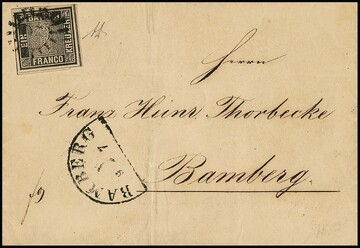 EIN BAYERN KREUZER
FRANCO
12
Herrn
Franz Heinr Thorbecke
Bamberg.
BAMBERG